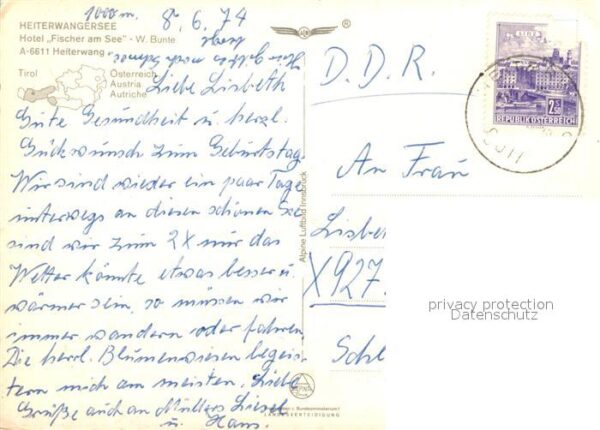 1000 m. 8. 6. 74
HEITERWANGERSEE
Hotel „Fischer am See" - W. Bunte
A-6611 Heiterwang
®
Tirol
Österreich
Austria
Autriche
Liebe Lisbeth
Gute Gesundheit u. herzl.
Glückwunsch zum Geburtstag.
Wir sind wieder ein paar Tage
unterwegs an diesen schönen See
sind wir zum 2X nur das
Wetter könnte etwas besser u.
wärmer sein, so müssen wir
immer wandern oder fahren.
Die herrl. Blumenwiesen begeis-
tern mich am meisten. Liebe
Grüße auch an Müllers Liesel
u. Hans.
Alpine Luftbild Innsbruck
LANDESVERTEIDIGUNG
LINZ
2.50
REPUBLIK ÖSTERREICH
D. D. R.
An Frau
Lisbe
X927
Schl
privacy protection
Datenschutz